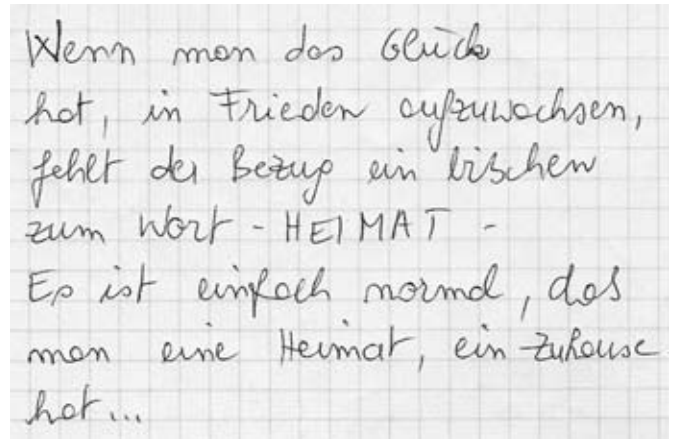 Wenn man das Glück
hat, in Frieden aufzuwachsen,
fehlt der Bezug ein bischen
zum Wort - HEIMAT -
Es ist einfach normal, das
man eine Heimat, ein Zuhause
hat...